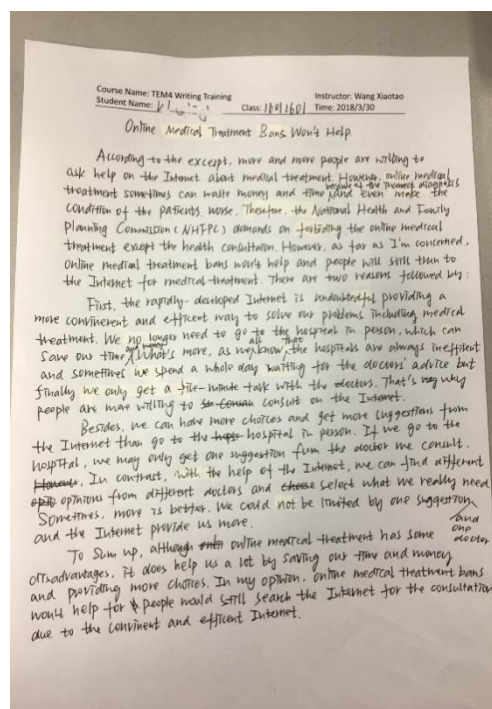 Course Name: TEM4 Writing Training Instructor: Wang Xiaotao
Student Name: Class: 1601601 Time: 2018/3/30
Online Medical Treatment Bans Won't Help
According to the excerpt, more and more people are willing to
ask help on the Internet about medical treatment. However, online medical
treatment sometimes can waste money and time and even make the
because of the incorrect diagnosis
condition of the patients worse. Therefore, the National Health and Family
Planning Commission (NHFPC) demands on forbiding the online medical
treatment except the health consultation. However, as far as I'm concerned,
online medical treatment bans won't help and people will still trun to
the Internet for medical treatment. There are two reasons followed by:
First, the rapidly-developed Internet is undoubtedful providing a
more convinerent and efficent way to solve our problems including medical
treatment. We no longer need to go to the hospital in person, which can
save our time and money. What's more, as we all know that the hospitals are always inefficent
and sometimes we spend a whole day waiting for the doctors' advice but
finally we only get a five-minute talk with the doctors. That's why
people are more willing to consult on the Internet.
Besides, we can have more choices and get more suggestions from
the Internet than go to the hospital in person. If we go to the
hospital, we may only get one suggestion from the doctor we consult.
In contrast, with the help of the Internet, we can find different
opinions from different doctors and select what we really need
Sometimes, more is better. We could not be limited by one suggestion
and one doctor
and the Internet provide us more.
To sum up, although online medical treatment has some
disadvantages, it does help us a lot by saving our time and money
and providing more choices. In my opinion, online medical treatment bans
won't help for people would still search the Internet for the consultation
due to the convinent and efficent Internet.